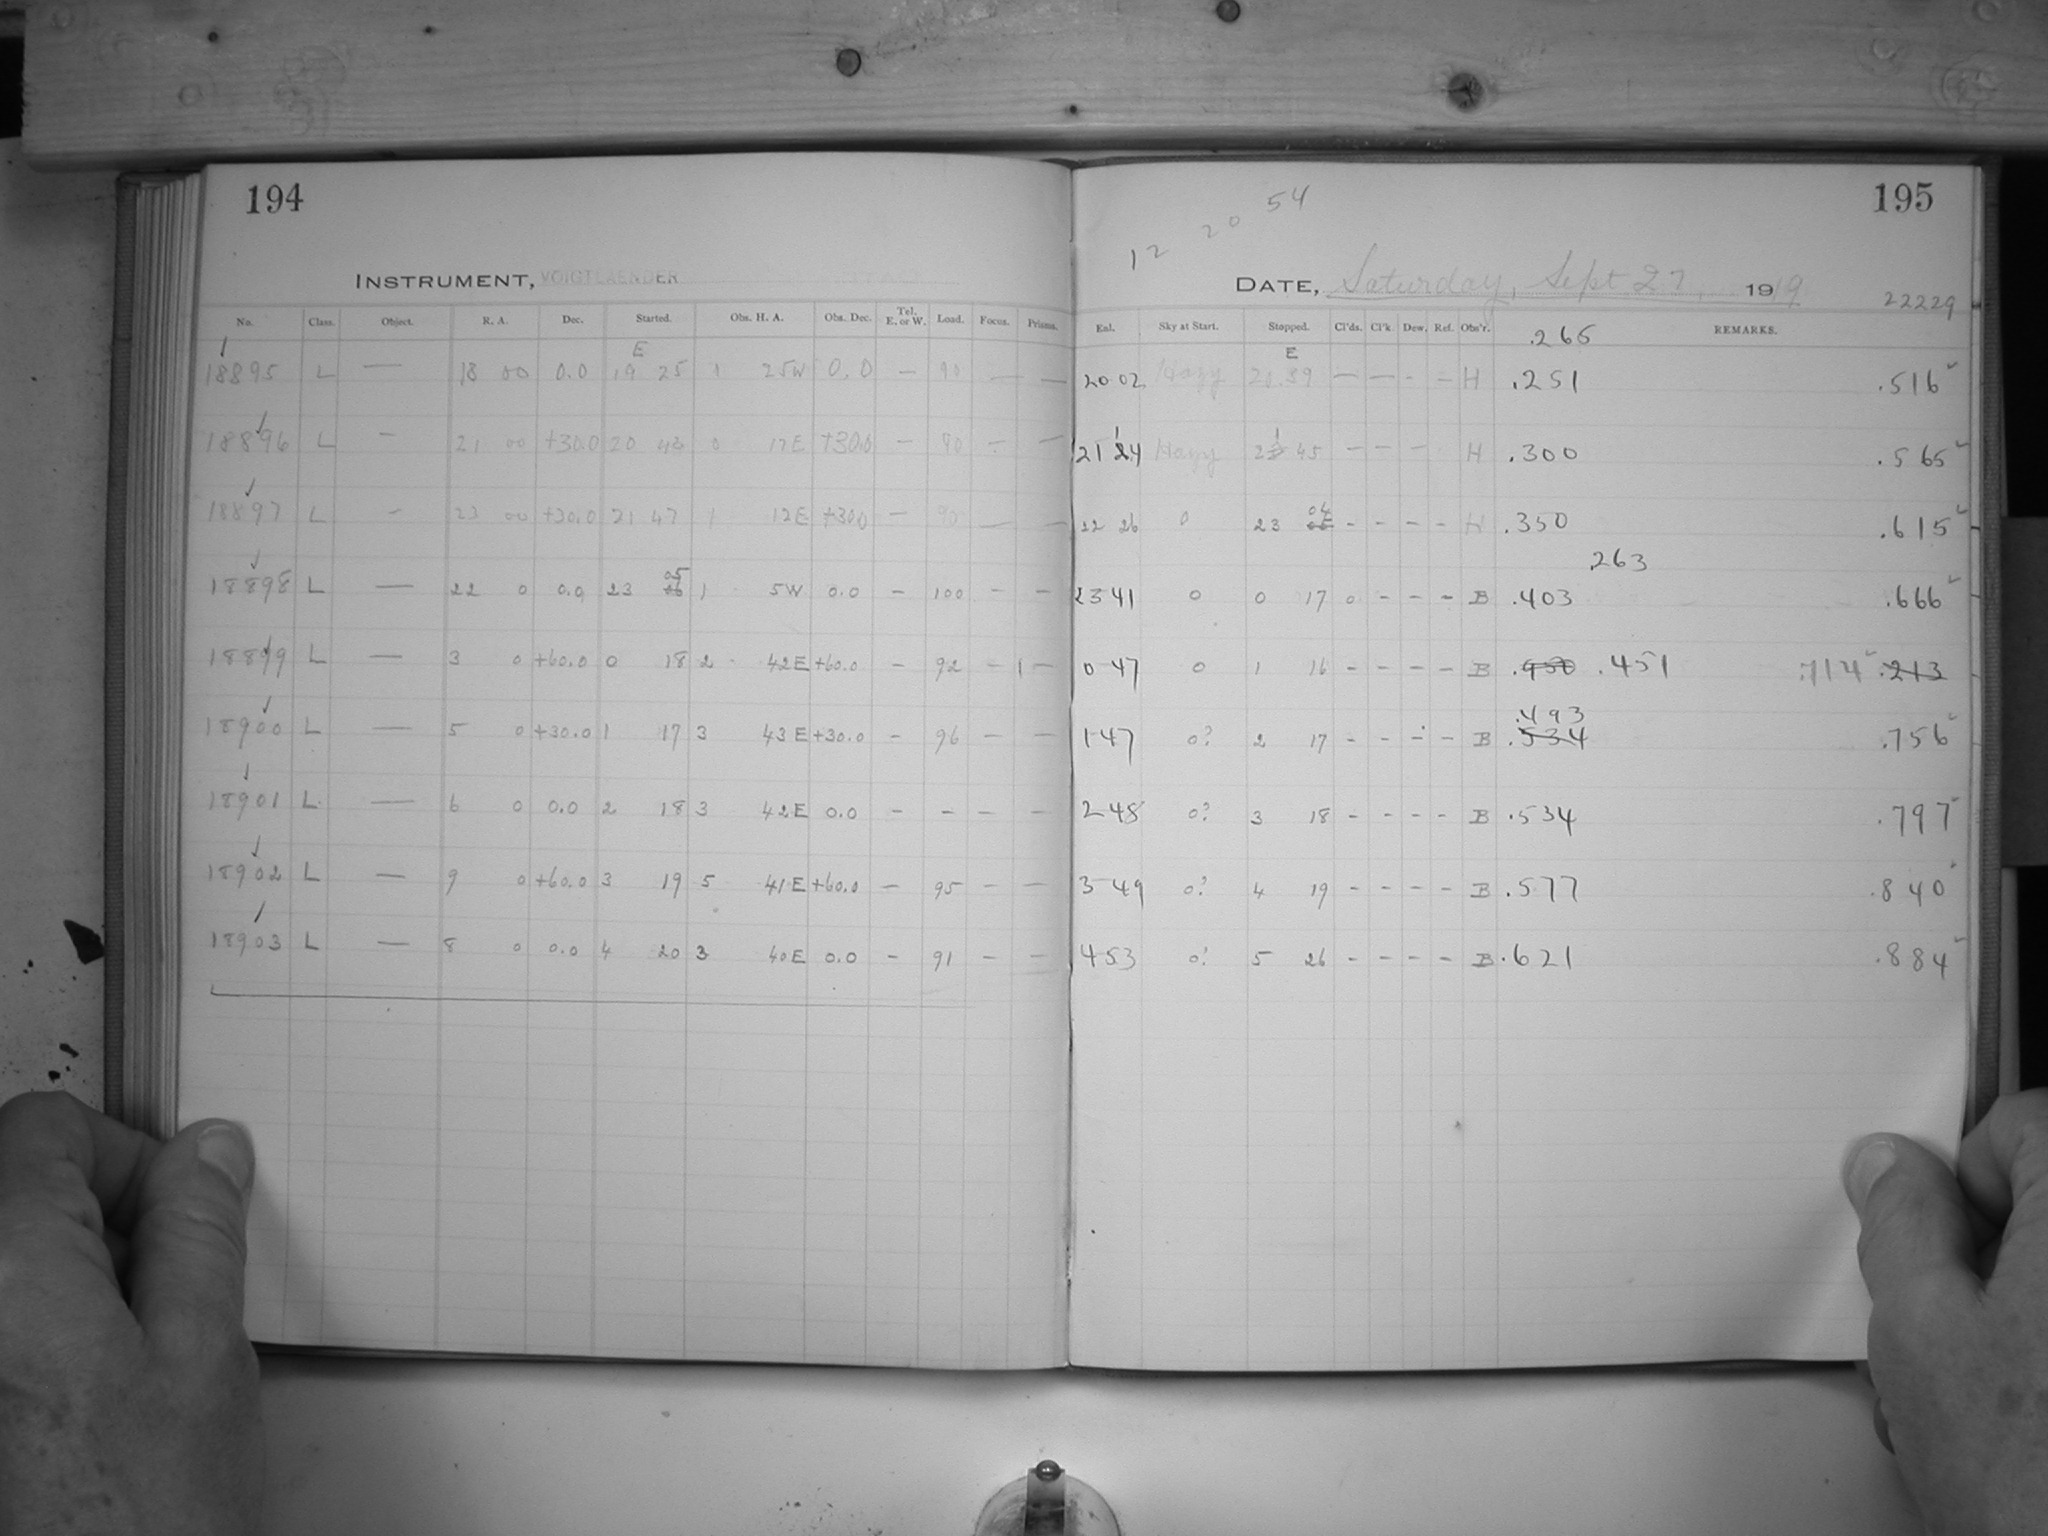 194
INSTRUMENT, VOIGTLAENDER
No. Class. Object. R. A. Dec. Started. Obs. H. A. Obs. Dec. Tel. E. or W. Load. Focus. Prisms.
E
18895 L — 18 00 0.0 19 25 1 25W 0.0 — 90 — —
18896 L — 21 00 +30.0 20 43 0 17E +30.0 — 90 — —
18897 L — 23 00 +30.0 21 47 1 12E +30.0 — 90 — —
05
18898 L — 22 0 0.0 23 06 1 5W 0.0 — 100 — —
18899 L — 3 0 +60.0 0 18 2 42E +60.0 — 92 — —
18900 L — 5 0 +30.0 1 17 3 43E +30.0 — 96 — —
18901 L — 6 0 0.0 2 18 3 42E 0.0 — — — —
18902 L — 9 0 +60.0 3 19 5 41E +60.0 — 95 — —
18903 L — 8 0 0.0 4 20 3 40E 0.0 — 91 — —
195
12 20 54
DATE, Saturday, Sept. 27, 1919
22229
Enl. Sky at Start. Stopped. Cl'ds. Cl'k. Dew. Ref. Obs'r. REMARKS.
.265
E
20 02 Hazy 20.39 — — - - H .251 .516
21 24 Hazy 21 45 — — — H .300 .565
04
22 26 0 23 - - - - H .350 .615
.263
23 41 0 0 17 0 - - - B .403 .666
0 47 0 1 16 - - - - B .450 .451 .714 .213
.493
1 47 0? 2 17 - - - - B .534 .756
2 48 0? 3 18 - - - - B .534 .797
3 49 0? 4 19 - - - - B .577 .840
4 53 0? 5 26 - - - - B .621 .884